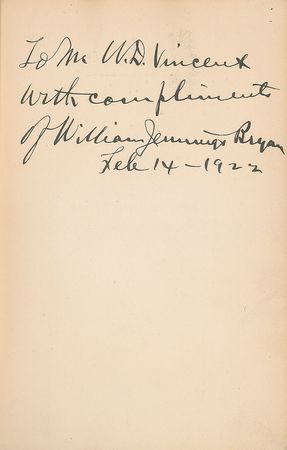 To Mr W.D. Vincent
With compliments
of William Jennings Bryan
Feb 14-1922